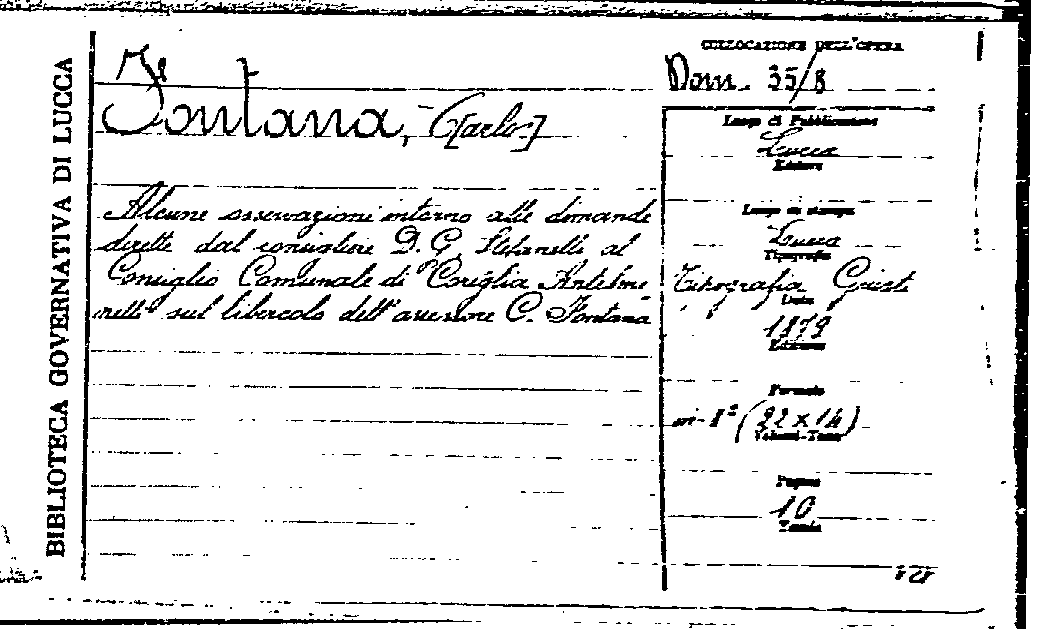 BIBLIOTECA GOVERNATIVA DI LUCCA
Fontana, [Carlo]
Alcune osservazioni intorno alle domande
dirette dal consigliere D. G. Stefanelli al
Consiglio Comunale di Coreglia Antelmi-
nelli sul libercolo dell'assessore C. Fontana
COLLOCAZIONE DELL'OPERA
Dom. 35/8
Luogo di Pubblicazione
Lucca
Editore
Luogo di stampa
Lucca
Tipografia
Tipografia Giusti
Data
1879
Edizione
Formato
in-8° (22 x 14)
Volumi-Tomi
Pagine
10
Tavole